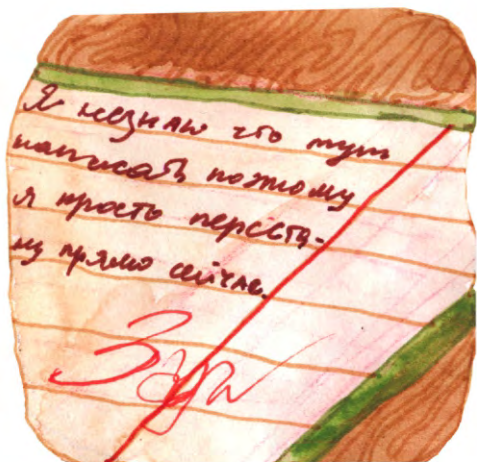 Я незнаю что тут
написать поэтому
я просто переста-
ну прямо сейчас.
Зря